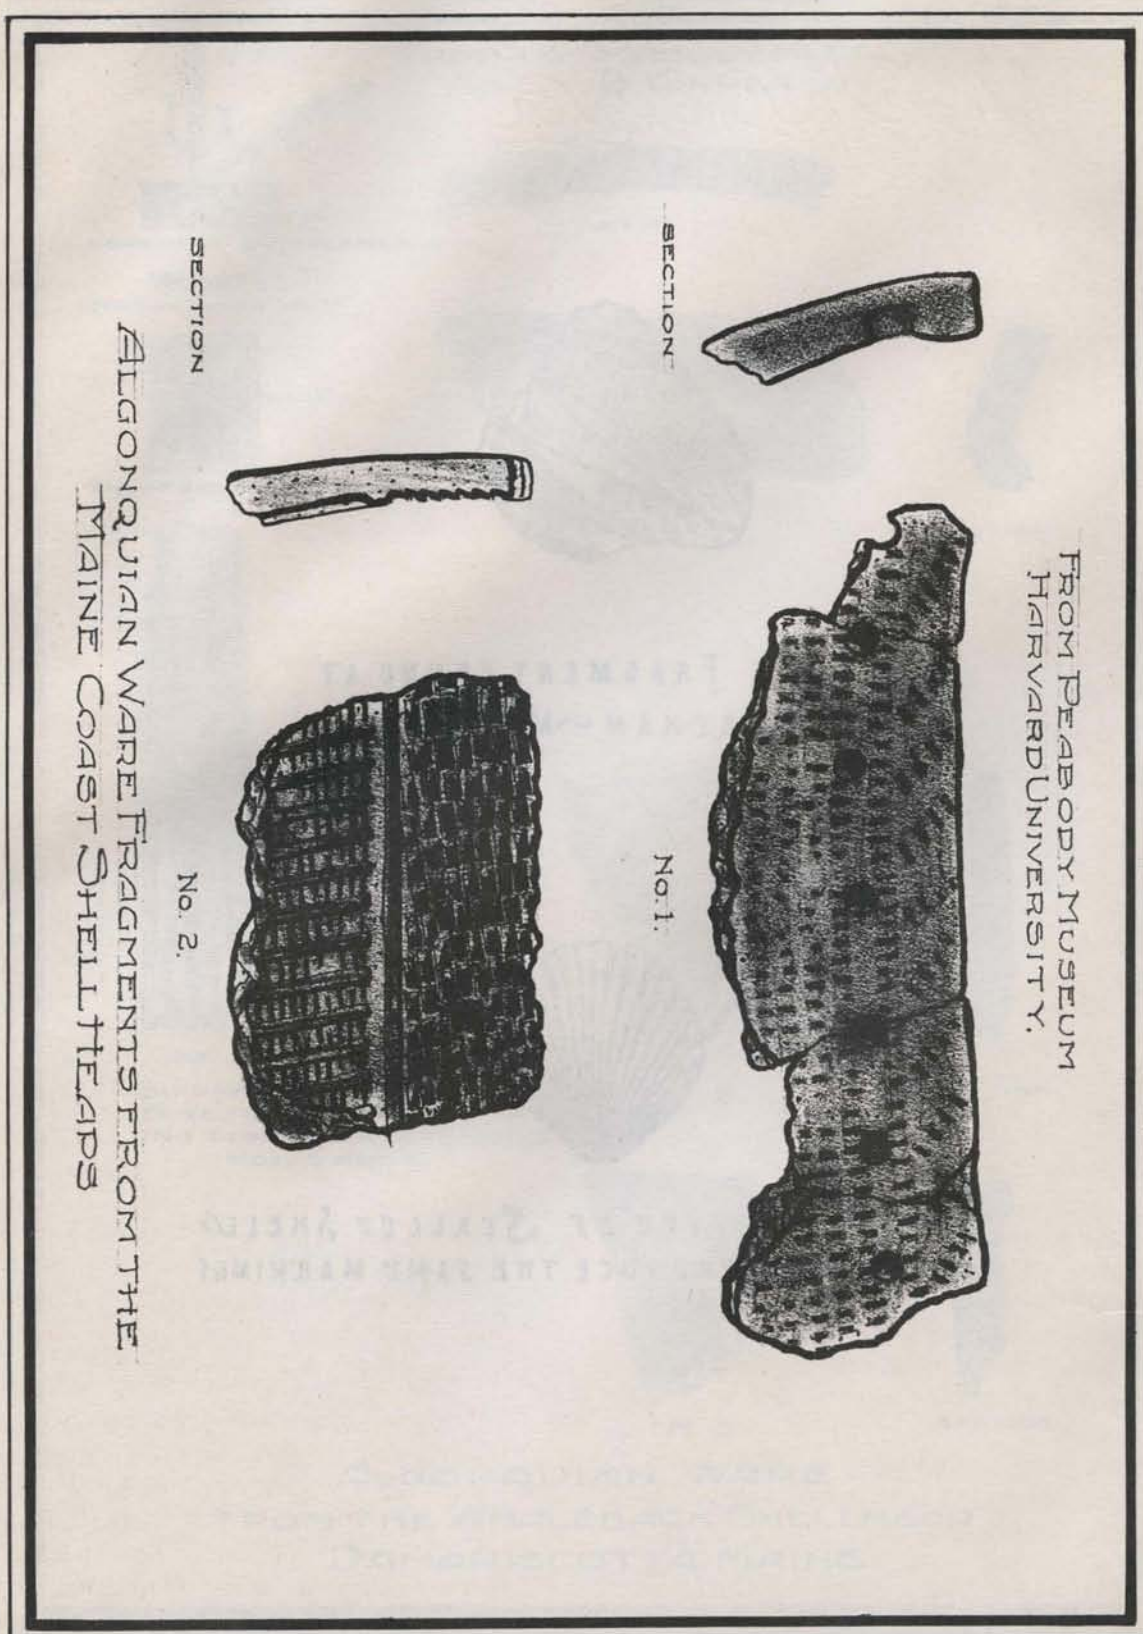 FROM PEABODY MUSEUM
HARVARD UNIVERSITY.
SECTION
No. 1.
SECTION
No. 2.
ALGONQUIAN WARE FRAGMENTS FROM THE
MAINE COAST SHELL HEAPS